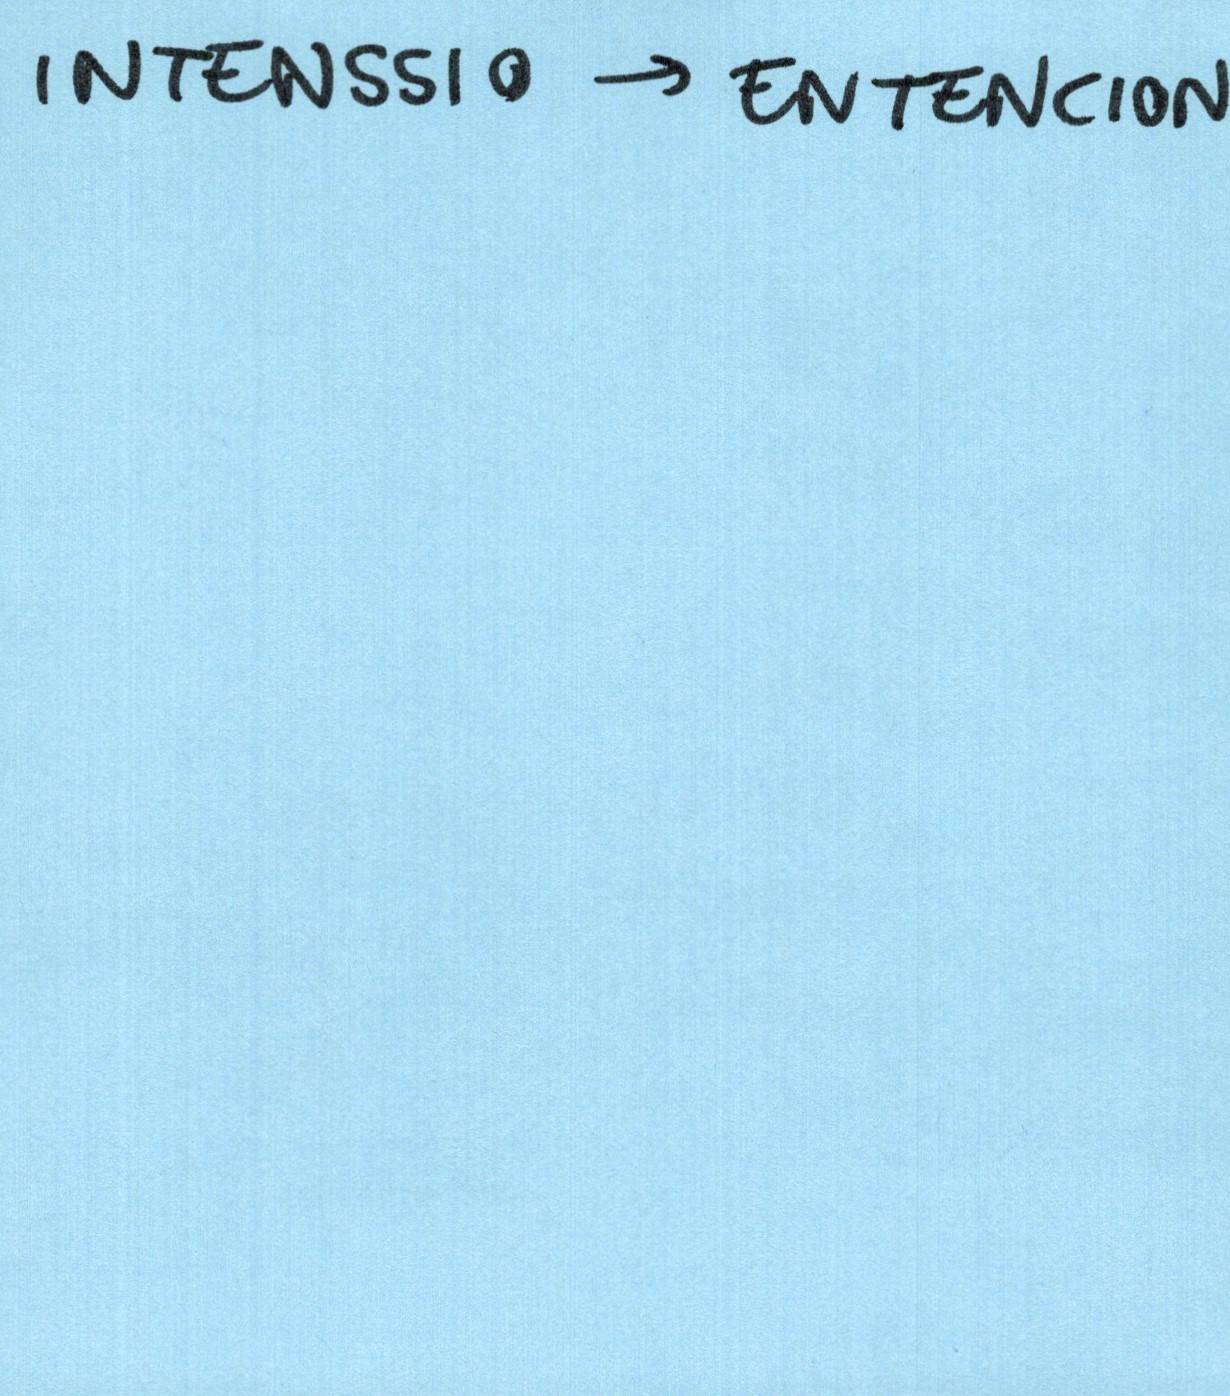 INTENSSIO → ENTENCION